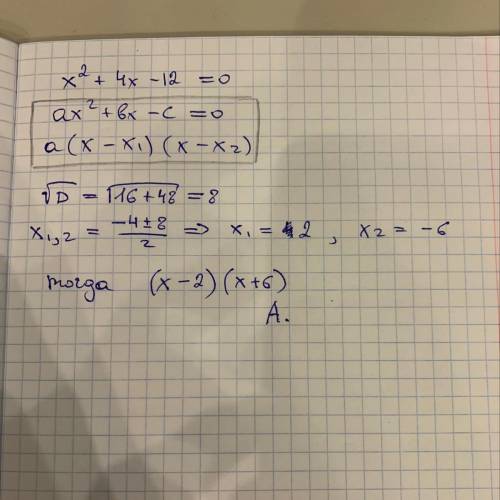 x² + 4x - 12 = 0
ax² + bx - c = 0
a(x - x₁)(x - x₂)
√D = √16 + 48 = 8
x₁,₂ = (-4 ± 8)/2 ⇒ x₁ = 2, x₂ = -6
тогда (x - 2)(x + 6)
A.